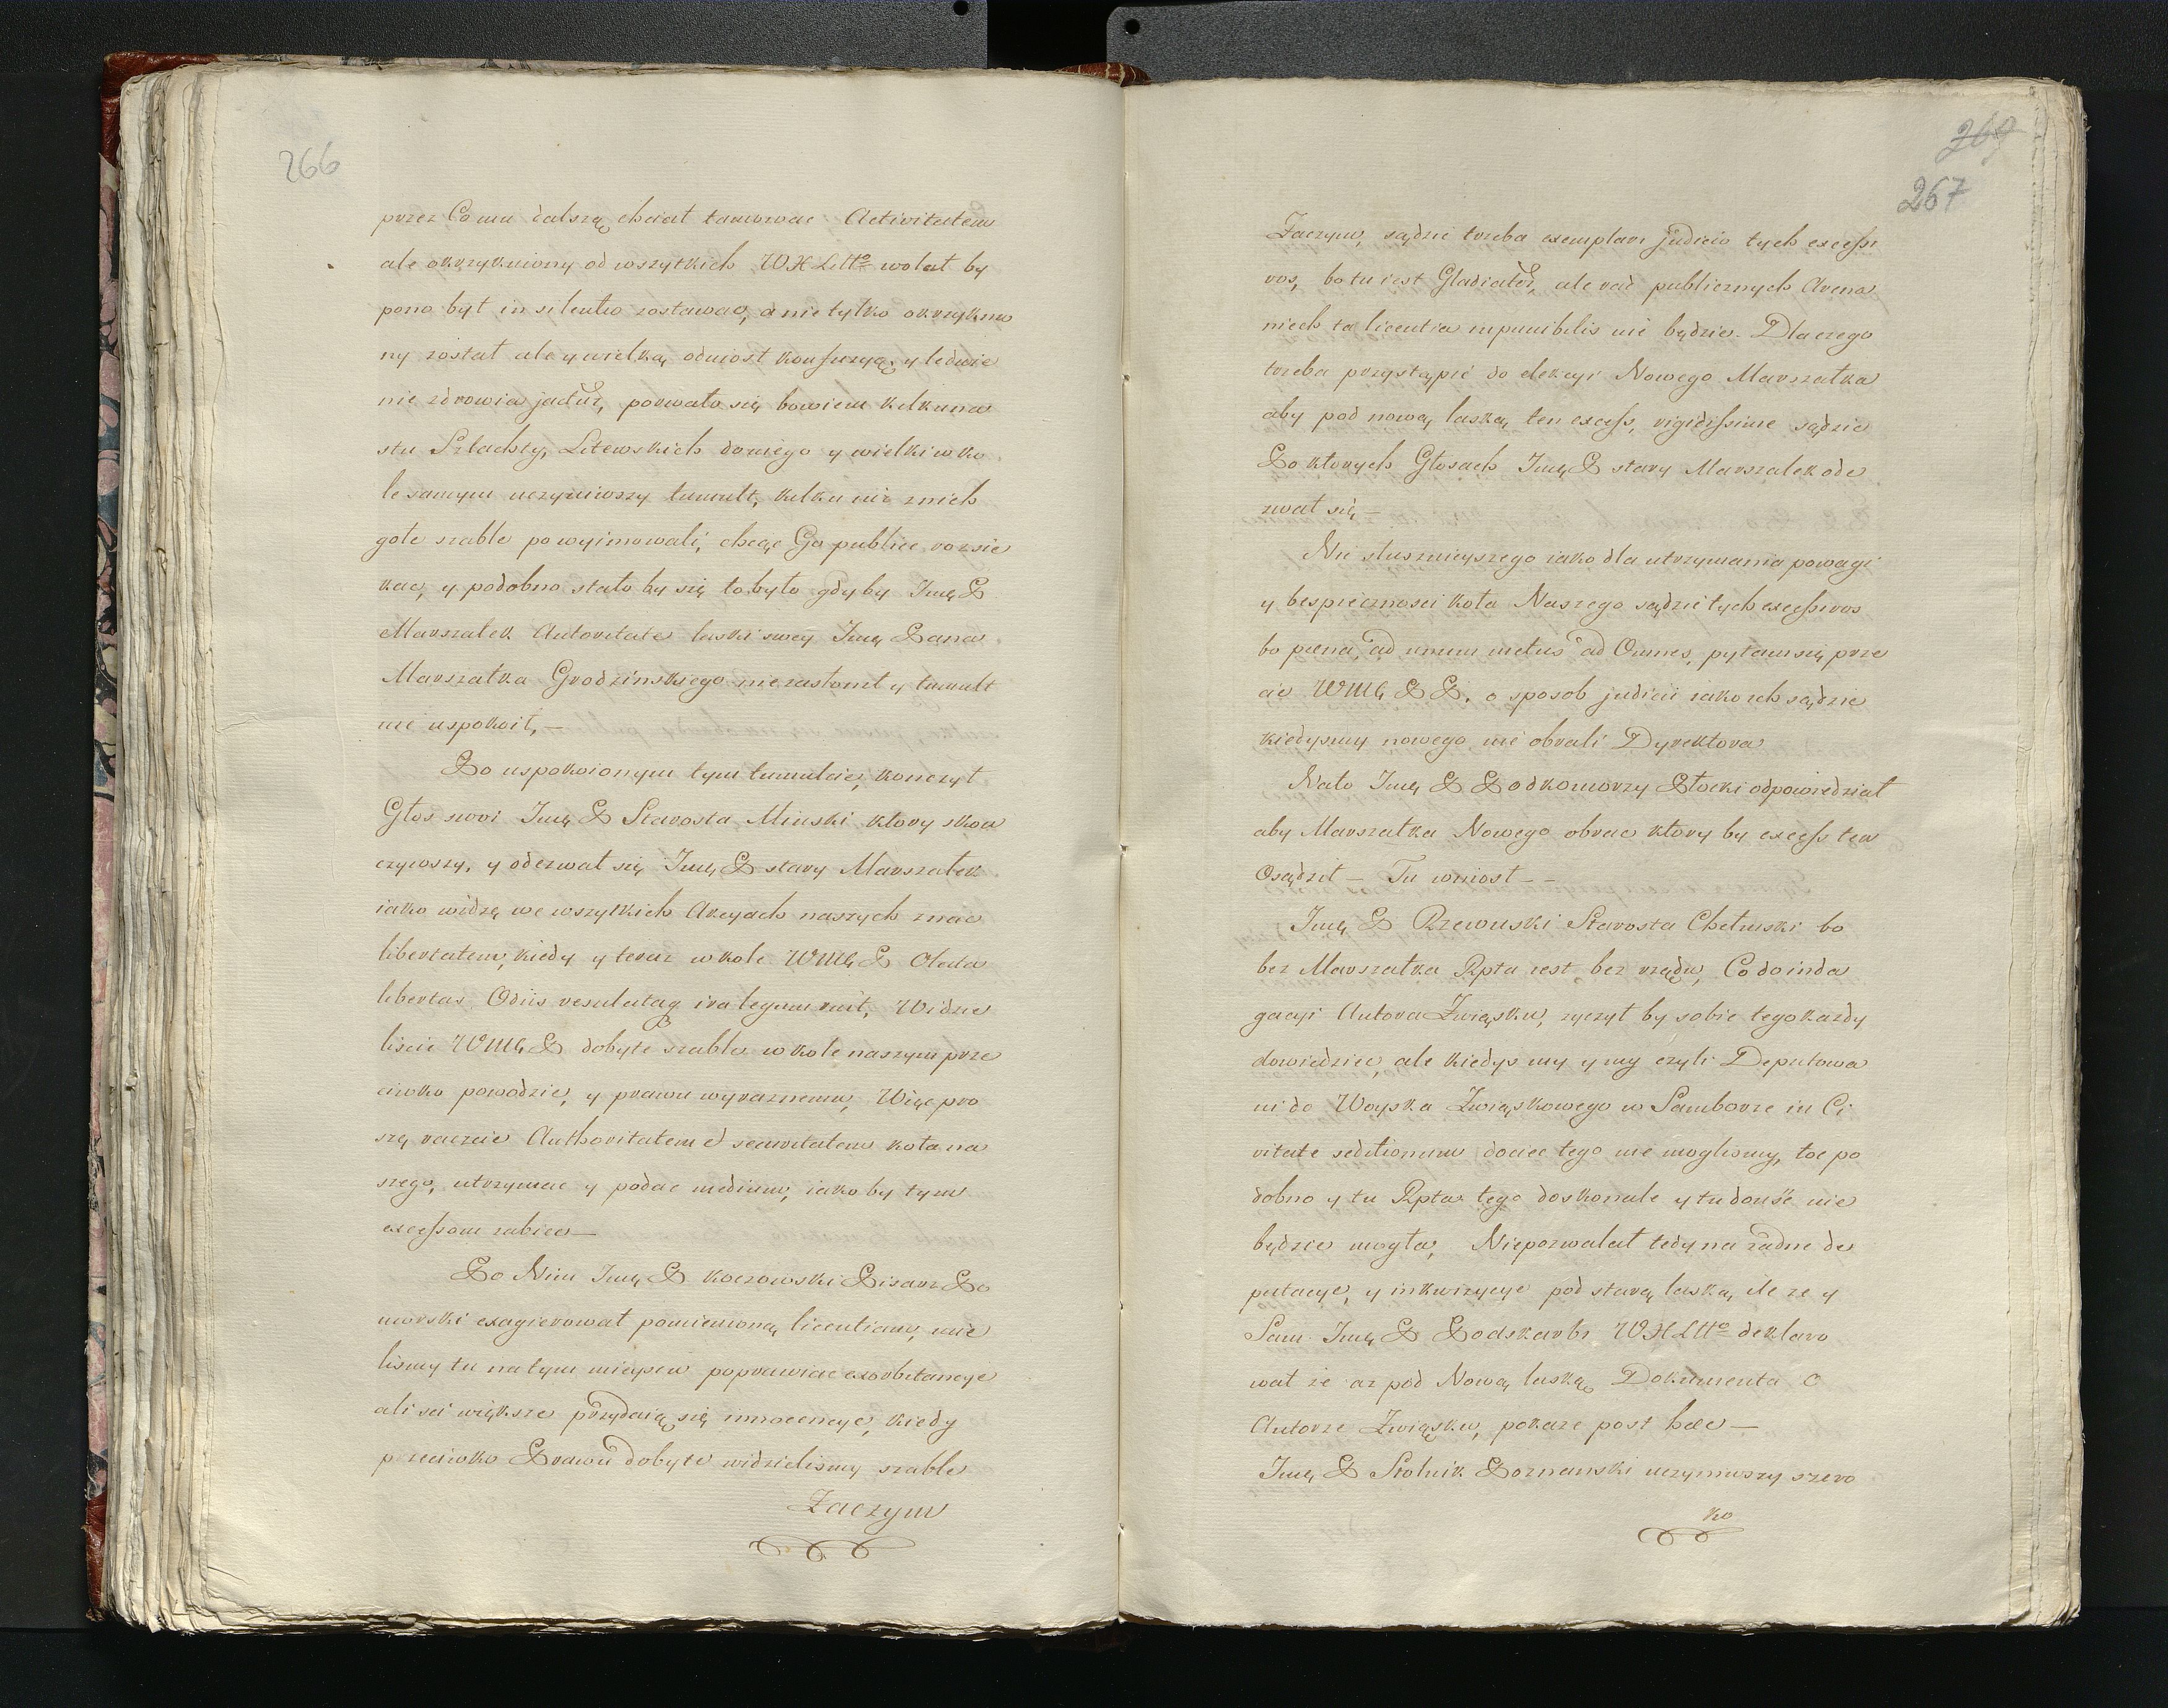 266
przez Co mu dalszą chciał tamować Activitatem
ale okrzykniony od wszytkich WXLitto wolał by
pono był in silentio zostawać, a nie tylko okrzyknio
ny został ale y wielką odniosł konfuzyą, y ledwie
nie zdrowia jactur, porwało się bowiem kilkuna
stu Szlachty, Litewskich do niego y wielki w ko
le samym uczyniwszy tumult, kilku nic z nich
gołe szable powyimowali, chcąc Go publice rozsie
kać, y podobno stało by się to było gdyby Jmę P
Marszałek Autoritate laski swey Jmę Pana
Marszałka Grodzinskiego nie zasłonił y tumult
nie uspokoił, —
Po uspokoionym tym tumulcie, konczył
Głos swoi Jmę P Starosta Minski ktory skon
czywszy, y odezwał się Jmę P stary Marszałek
iako widzę we wszytkich Akcyach naszych znać
libertatem, kiedy y teraz w kole WMć P
libertas Odiis resulutaq ira legum ruit, Widzie
liscie WMć P dobyte szable w kole naszym prze
ciwko powodzie, y prawu wyraznemu, Więc pro
szę raczcie Authoritatem et securitatem koła na
szego, utrzymać y podać medium, iako by tym
excessom zabiec —
Po Nim Jmę P Koczowski Pisarz Po
morski exagierował pomienioną licentiam, mie
lismy tu na tym mieyscu poprawiać exorbitancye
ali sci większe przydaią się innocencye, kiedy
przeciwko Prawu dobyte widzielismy szable
Zaczym
269
267
Zaczym, sądzić trzeba exemplari judicio tych excessi
vos, bo tu iest Gladiator, ale rad publicznych Arena
niech ta licentia inpunibilis nie będzie. Dla czego
trzeba przystąpić do elekcyi Nowego Marszałka
aby pod nową laską ten excess, rigidissime sądzić
Po ktorych Głosach Jmę P stary Marszałek ode
zwał się —
Nic słusznieyszego iako dla utrzymania powagi
y bespiecznosci koła Naszego sądzić tych excessivos
bo poena, ad unum metus ad Omnes, pytam się prze
cie WMć P P. o sposob judicii iako ich sądzić
kiedysmy nowego nie obrali Dyrektora
Na to Jmę P Podkomorzy Płocki odpowiedział
aby Marszałka Nowego obrać ktory by excess ten
Osądził — Tu wniosł — —
Jmę P Rzewuski Starosta Chełmski bo
bez Marszałka Rpta iest bez rządu, Co do inda
gacyi Autora Związku, zyczył by sobie tego kazdy
dowiedziec, ale kiedys my y my czyli Deputowa
ni do Woyska Związkowego w Samborze in Ci
vitate seditionum dociec tego nie moglismy, toć po
dobno y tu Rpta tego doskonale y tu donść nie
będzie mogła, Niepozwalał tedy na zadne de
putacye, y inkwizycye pod starą laską, ile ze y
Sam Jmę P Podskarbi WXLitto deklaro
wał ze az pod Nową laską Dokumenta o
Autorze Związku, pokaze post haec —
Jmę P Stolnik Poznanski uczyniwszy szero
ko